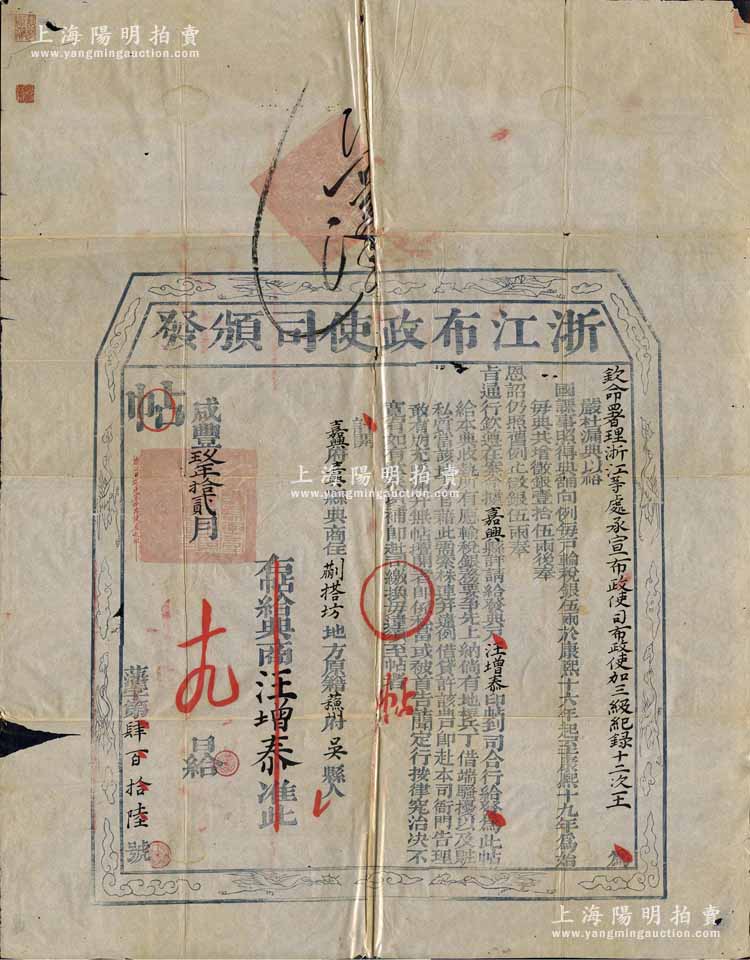 上海陽明拍賣
www.yangmingauction.com
浙江布政使司頒發
欽命署理浙江等處承宣布政使司布政使加三級紀錄十二次王 為
嚴杜漏典以裕
國課事照得典鋪向例每戶輸稅銀伍兩於康熙十六年起至康熙十九年為始
每典共增徵銀壹拾伍兩後奉
恩詔仍照舊例止徵銀伍兩奉
旨通行欽遵在案今據嘉興縣詳請給發典戶汪增泰印帖到司合行給發為此帖
給本典收執所有應輸稅銀務要爭先上納倘有地棍兵丁借端騷擾以及
私質當該地方官藉此需索株連并違例借貸許該典戶即赴本司衙門告理
敢有頂充無帖擅開者即係私當或被首告聞定行按律究治決不
寬宥如有補即赴司繳換毋違須至帖者
帖
計開
嘉興府嘉興縣典商住蒯搭坊地方原籍蘇州府吳縣人
右帖給典商汪增泰准此
咸豐玖年拾貳月十九日給
帖
藩字第肆百拾陸號
上海陽明拍賣
www.yangmingauction.com
上海陽明拍賣
www.yangmingauction.com